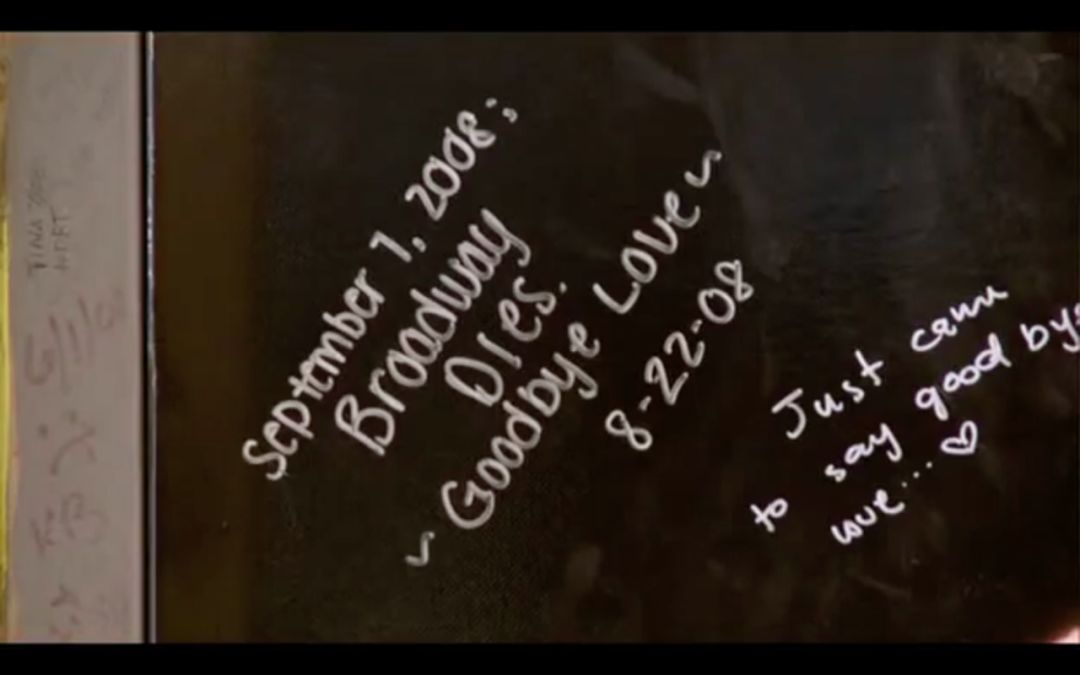 September 7, 2008;
Broadway
Dies.
~ Goodbye Love ~
8-22-08
Just came
to say good bye
love... ♡
TINA